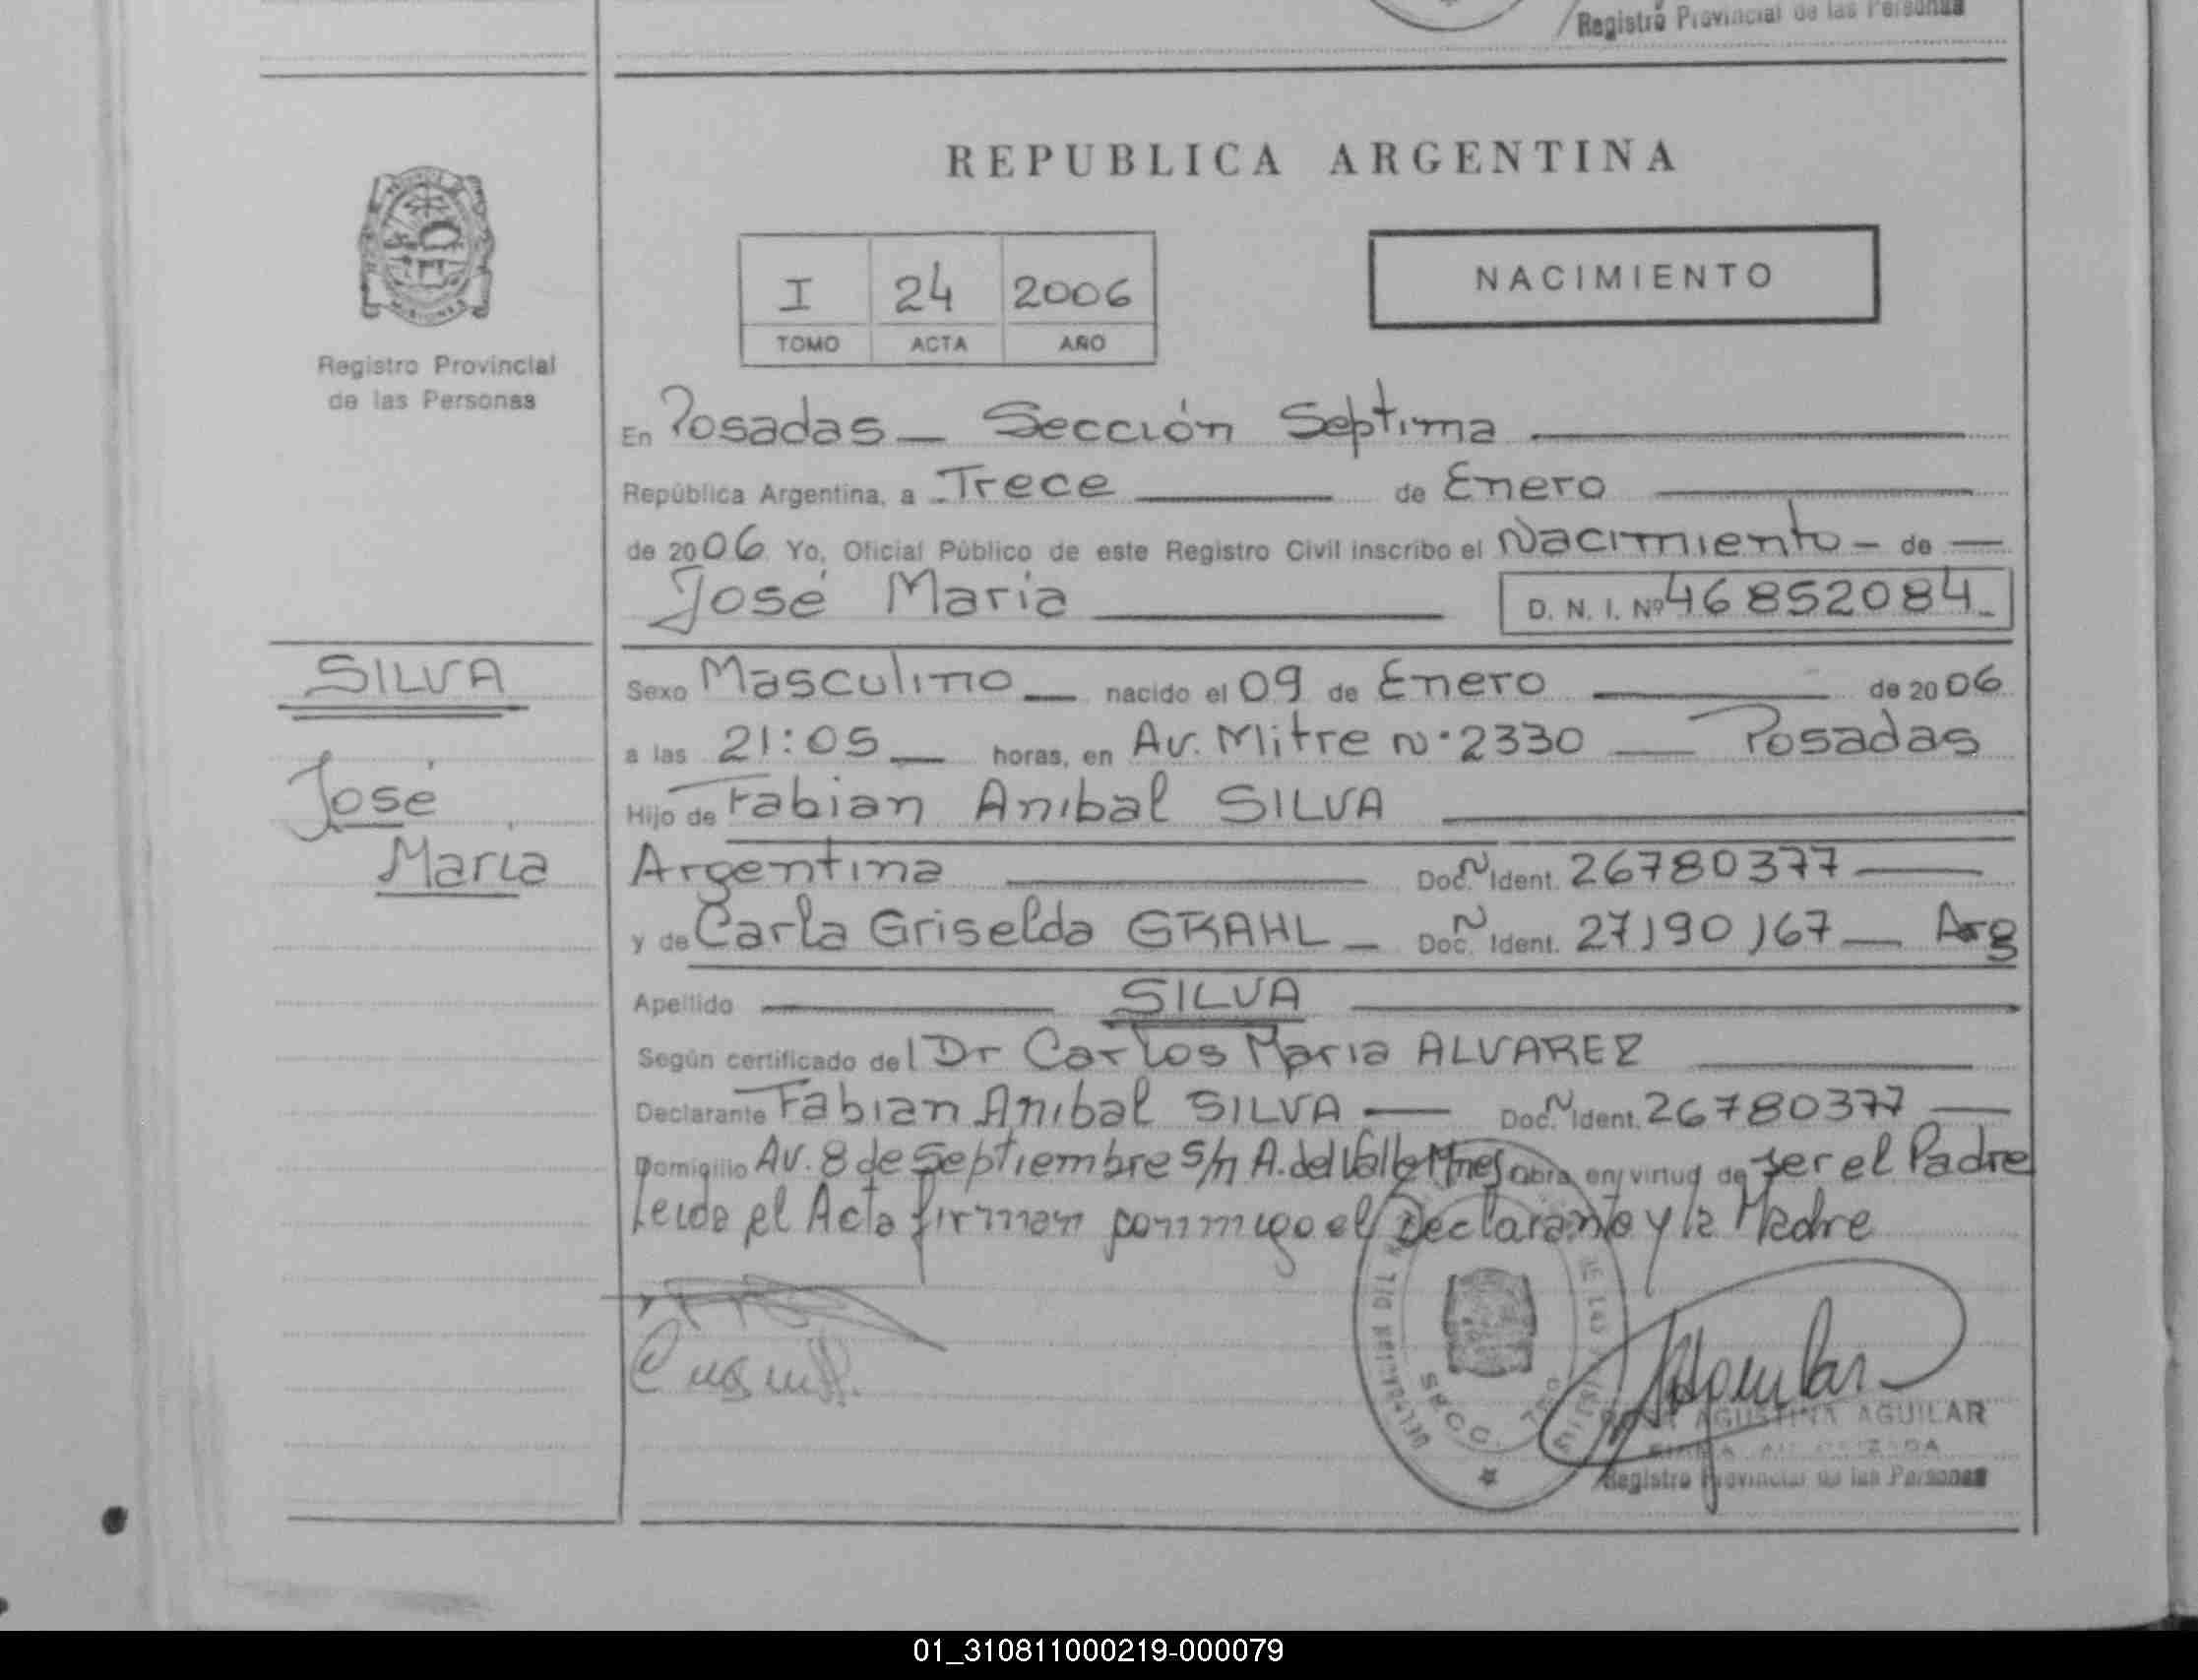 Registro Provincial de las Personas
REPUBLICA ARGENTINA
I 24 2006
TOMO ACTA AÑO
NACIMIENTO
MISIONES
Registro Provincial
de las Personas
En Posadas — Sección Septima
República Argentina, a Trece de Enero
de 2006 Yo, Oficial Público de este Registro Civil inscribo el Nacimiento — de —
José María D. N. I. Nº 46852084
SILVA
José
María
Sexo Masculino — nacido el 09 de Enero de 2006
a las 21:05 — horas, en Av. Mitre Nº 2330 — Posadas
Hijo de Fabian Anibal SILVA
Argentina Doc. N Ident. 26780377
y de Carla Griselda GRAHL — Doc. N Ident. 27190167 — Arg
Apellido SILVA
Según certificado del Dr Carlos Maria ALVAREZ
Declarante Fabian Anibal SILVA — Doc. N Ident. 26780377
Domicilio Av. 8 de Septiembre s/n A. del Valle Mnes Obra en virtud de ser el Padre
Leida el Acta firman conmigo el Declarante y la Madre
SECC. 7
AGUSTINA AGUILAR
Registro Provincial de las Personas
01_310811000219-000079